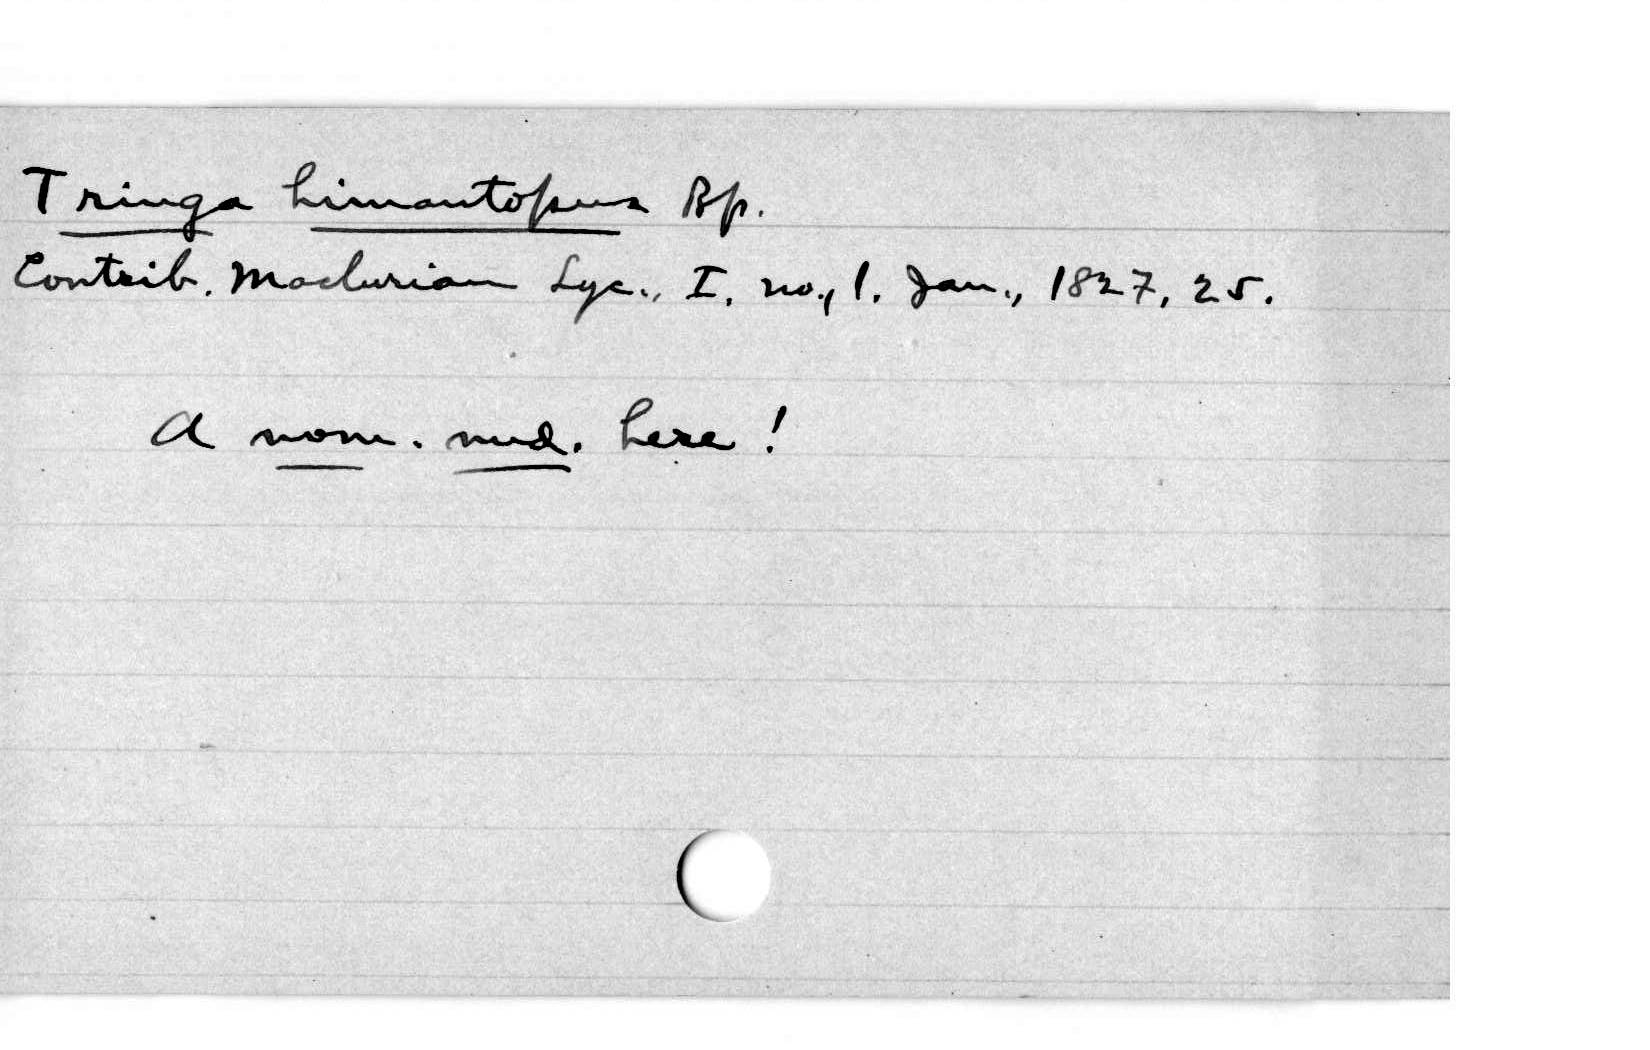 Tringa himantopus Bp.
Contrib. Maclurian Lyc., I. no., 1. Jan., 1827, 25.
A nom. nud. here!